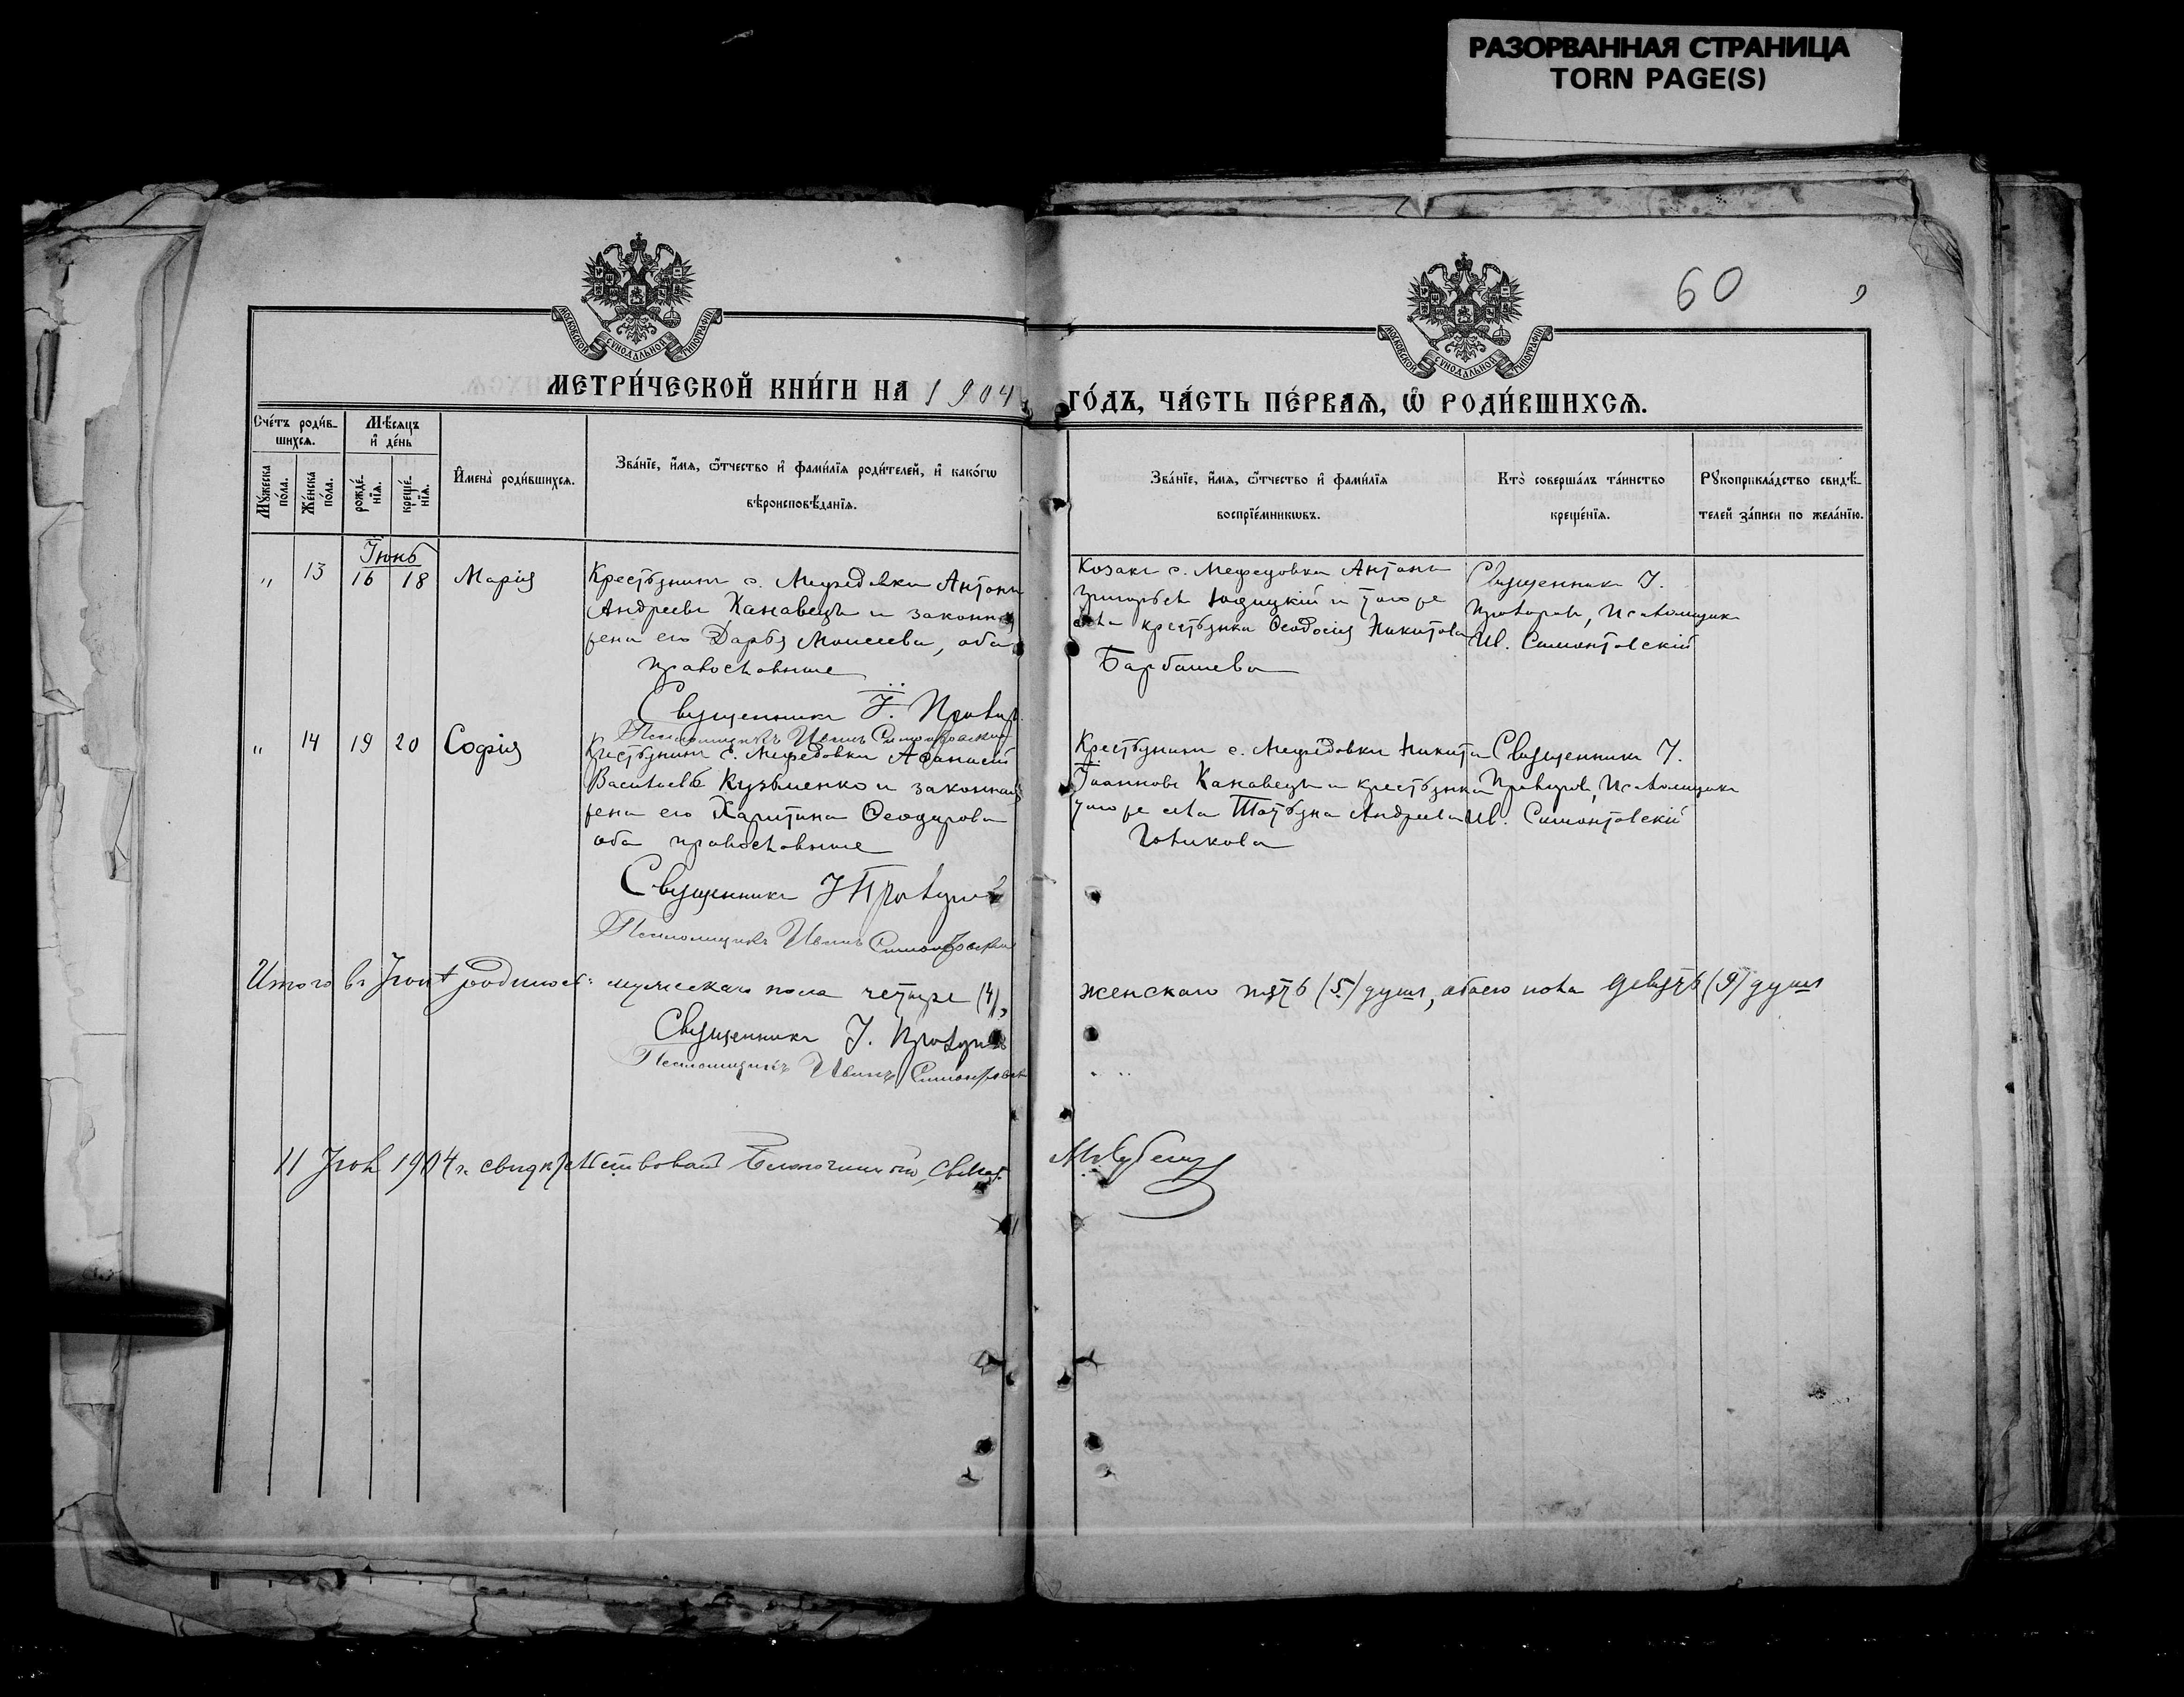 РАЗОРВАННАЯ СТРАНИЦА
TORN PAGE(S)
60
МОСКОВСКОЙ СѴНОДАЛЬНОЙ ТИПОГРАФІИ
МОСКОВСКОЙ СѴНОДАЛЬНОЙ ТИПОГРАФІИ
МЕТРИ́ЧЕСКОЙ КНИ́ГИ НА 1904
ГО́ДЪ, ЧА́СТЬ ПЕ́РВАѦ, Ѽ РОДИ́ВШИХСѦ.
Сче́тъ роди́в-
шихсѧ.
Мꙋ́жеска по́ла.
Же́нска по́ла.
Мѣ́сѧцъ
и҆ де́нь
рожде́-
нїѧ.
креще́-
нїѧ.
И҆мена̀ роди́вшихсѧ.
Зва́нїе, и҆́мѧ, ѻ҆́тчество и҆ фами́лїѧ роди́телей, и҆ како́гѡ
вѣроисповѣ́данїѧ.
Зва́нїе, и҆́мѧ, ѻ҆́тчество и҆ фами́лїѧ
воспрїе́мникѡвъ.
Кто̀ соверша́лъ та́инство
креще́нїѧ.
Рꙋкоприкла́дство свидѣ́-
телей за́писи по жела́нїю.
Іюнь
" 13 16 18 Марія
Крестьянинъ с. Мефедовки Антонъ
Андреевъ Канавецъ и законная
жена его Дарья Моисеева, оба
православные
Священникъ І.
Псаломщикъ Иванъ Симонтовскій
Козакъ с. Мефедовки Антонъ
Григорьевъ Юдицкій и того же
села крестьянка Ѳеодосія Никитова
Барбашева
Священникъ І.
Псаломщикъ
Ив. Симонтовскій
" 14 19 20 Софія
Крестьянинъ с. Мефедовки Афанасій
Васильевъ Кузьменко и законная
жена его Харитина Ѳеодорова
оба православные
Священникъ І
Псаломщикъ Иванъ Симонтовскій
Крестьянинъ с. Мефедовки Никита
Іоанновъ Канавецъ и крестьянка
того же села Татьяна Андреева
Новикова
Священникъ І.
Псаломщикъ
Ив. Симонтовскій
Итого въ Іюнѣ родилось: мужескаго пола четыре (4),
женскаго пять (5) душъ, обоего пола девять (9) душъ
Священникъ І.
Псаломщикъ Иванъ Симонтовскій
11 1904 г. свидѣтельствовалъ Благочинный, Свящ.